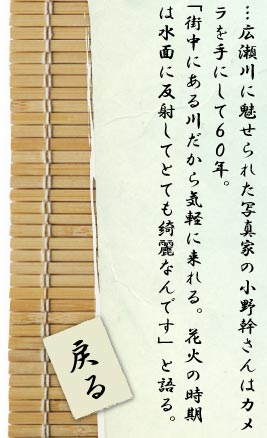 …広瀬川に魅せられた写真家の小野幹さんはカメ
ラを手にして60年。
「街中にある川だから気軽に来れる。花火の時期
は水面に反射してとても綺麗なんです」と語る。
戻る